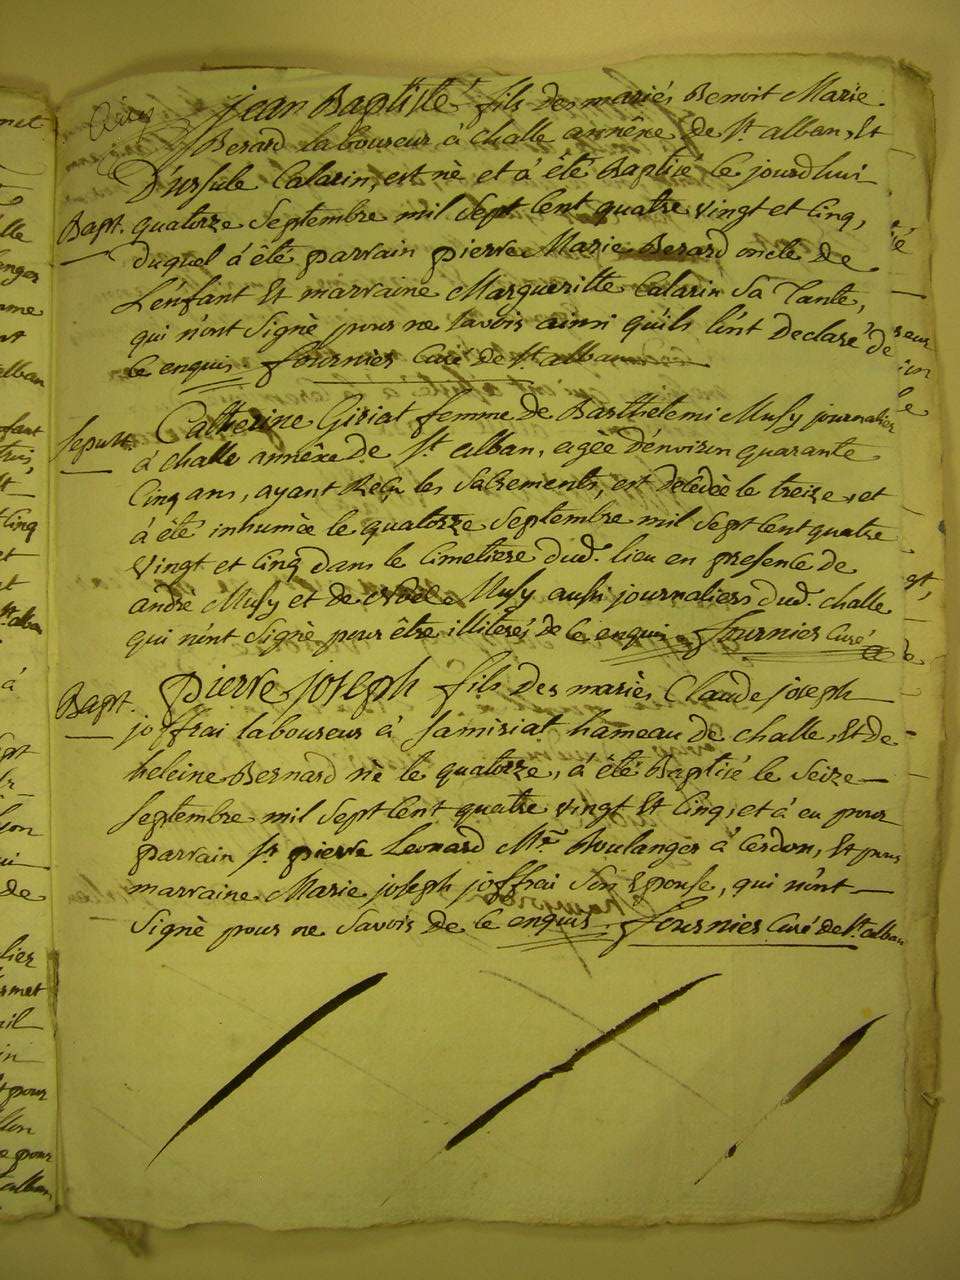 jean Baptiste fils des mariés Benoit Marie
Berard laboureur à challe annêxe de St alban, Et
D'ursule Calarin, est nè et à été Baptisé le jourdhui
Bapt. quatorze Septembre mil Sept Cent quatre vingt et Cinq,
duquel à été parrain pierre Marie Berard oncle de
L'enfant Et marraine Margueritte Calarin Sa Tante,
qui n'ont Signè pour ne Savoir ainsi qu'ils l'ont Declaré de
ce enquis fournier Curé de St alban
Sepult. Catherine Giriat femme de Barthelemi Musy journalier
à challe annêxe de St alban, agée d'environ quarante
Cinq ans, ayant Reçu les Sacrements, est décédée le treize, et
à été inhumée le quatorze Septembre mil Sept Cent quatre
vingt et Cinq dans le Cimetiere dud. lieu en presence de
andrè Musy et de Noël Musy aussi journaliers dud. challe
qui n'ont Signè pour être illiterés de ce enquis fournier Curé
Bapt. pierre joseph fils des mariés Claude joseph
joffrai laboureur à Samiriat hameau de challe, Et de
heleine Bernard né le quatorze, à été Baptisé le Seize
Septembre mil Sept Cent quatre vingt Et Cinq, et à eu pour
parrain Sr pierre Leonard Mre Boulanger à Cerdon, Et pour
marraine Marie joseph joffrai Son Epouse, qui n'ont
Signè pour ne Savoir de ce enquis. fournier Curé de St alban